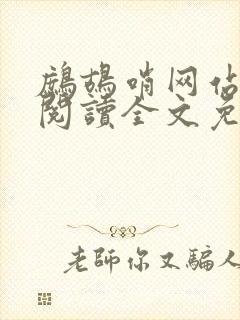 鷓鴣哨网
閱讀全文
老師你又騙人